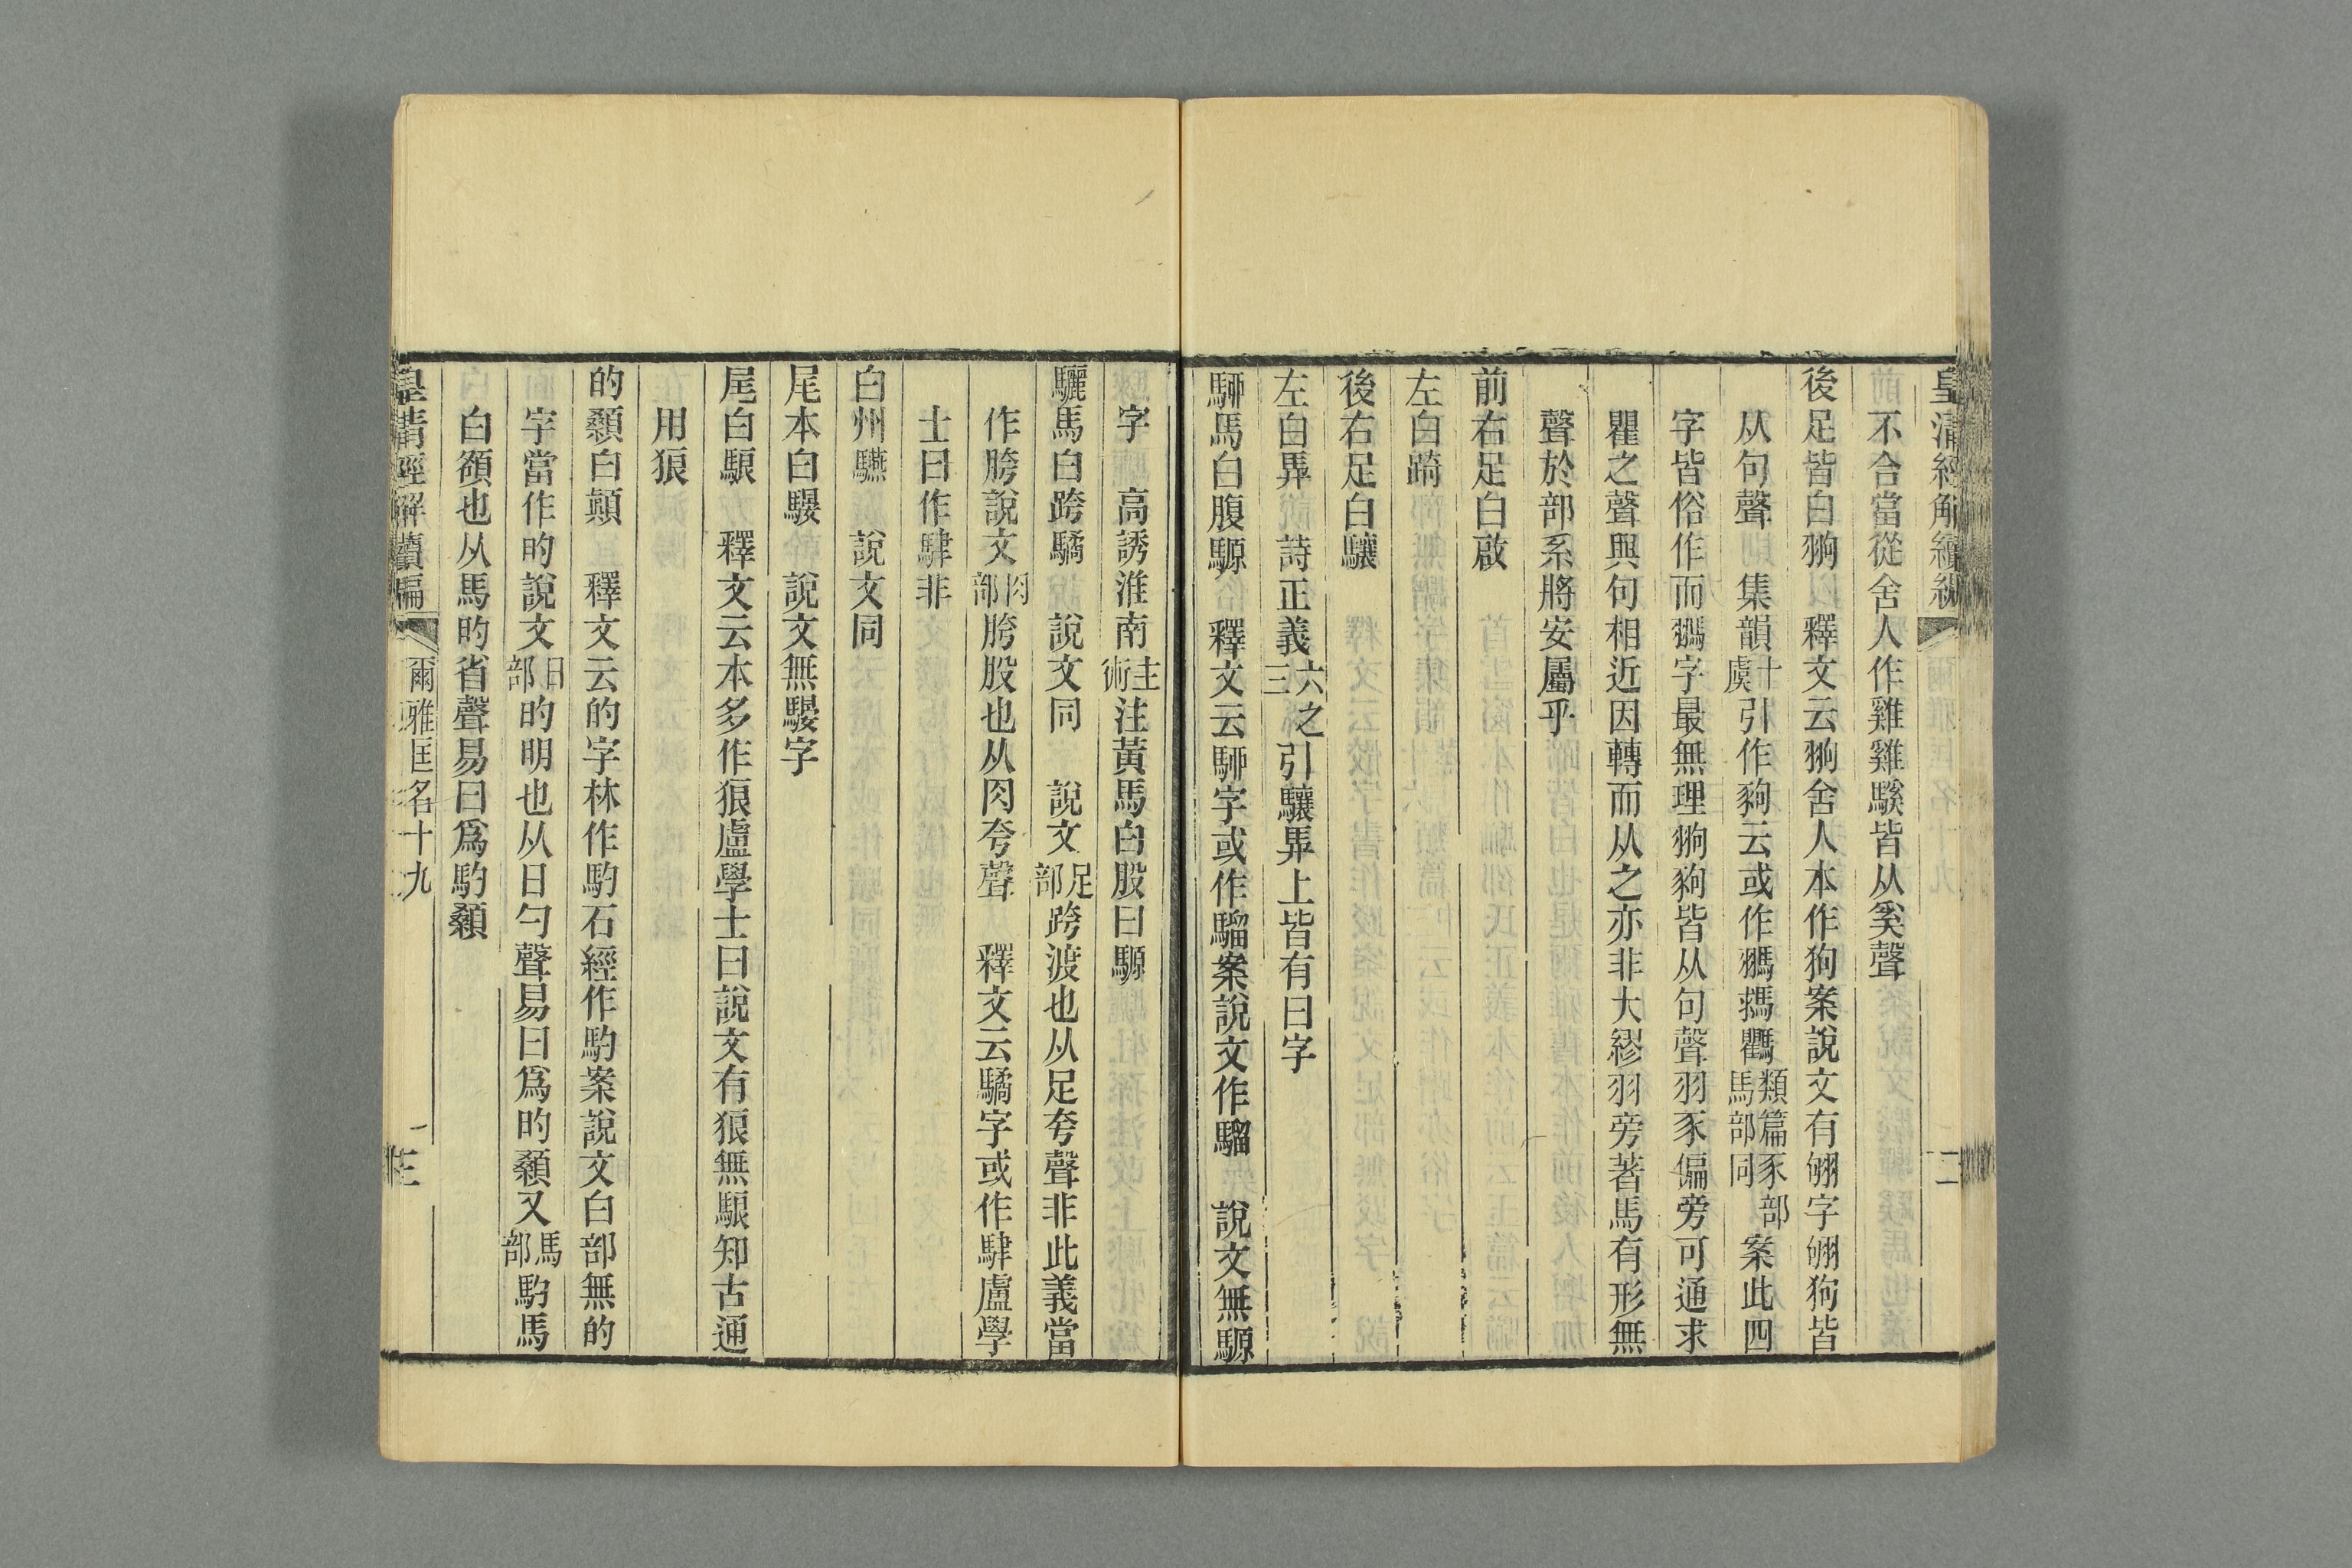 皇清經解續編 二
不合當從舍人作雞雞騱皆从奚聲
後足皆白翑 釋文云翑舍人本作狗案說文有翑字翑狗皆
从句聲 集韻十虞引作豿云或作 類篇豕部馬部同案此四
字皆俗作而 字最無理翑豿皆从句聲羽豕偏旁可通求
瞿之聲與句相近因轉而从之亦非大繆羽旁著馬有形無
聲於部系將安屬乎
前右足白啟
左白踦
後右足白驤
左白馵 詩正義六之三引驤馵上皆有曰字
駵馬白腹騵 釋文云駵字或作騮案說文作騮 說文無騵
字 高誘淮南主術注黃馬白股曰騵
驪馬白跨驈 說文同 說文足部跨渡也从足夸聲非此義當
作胯說文肉部胯股也从肉夸聲 釋文云驈字或作䮇盧學
士曰作䮇非
白州驠 說文同
尾本白騴 說文無騴字
尾白駺 釋文云本多作狼盧學士曰說文有狼無駺知古通
用狼
的顙白顛 釋文云的字林作馰石經作馰案說文白部無的
字當作旳說文日部旳明也从日勺聲易曰爲旳顙又馬部馰馬
白頟也从馬旳省聲易曰爲馰顙
皇清經解續編 爾雅匡名十九 三